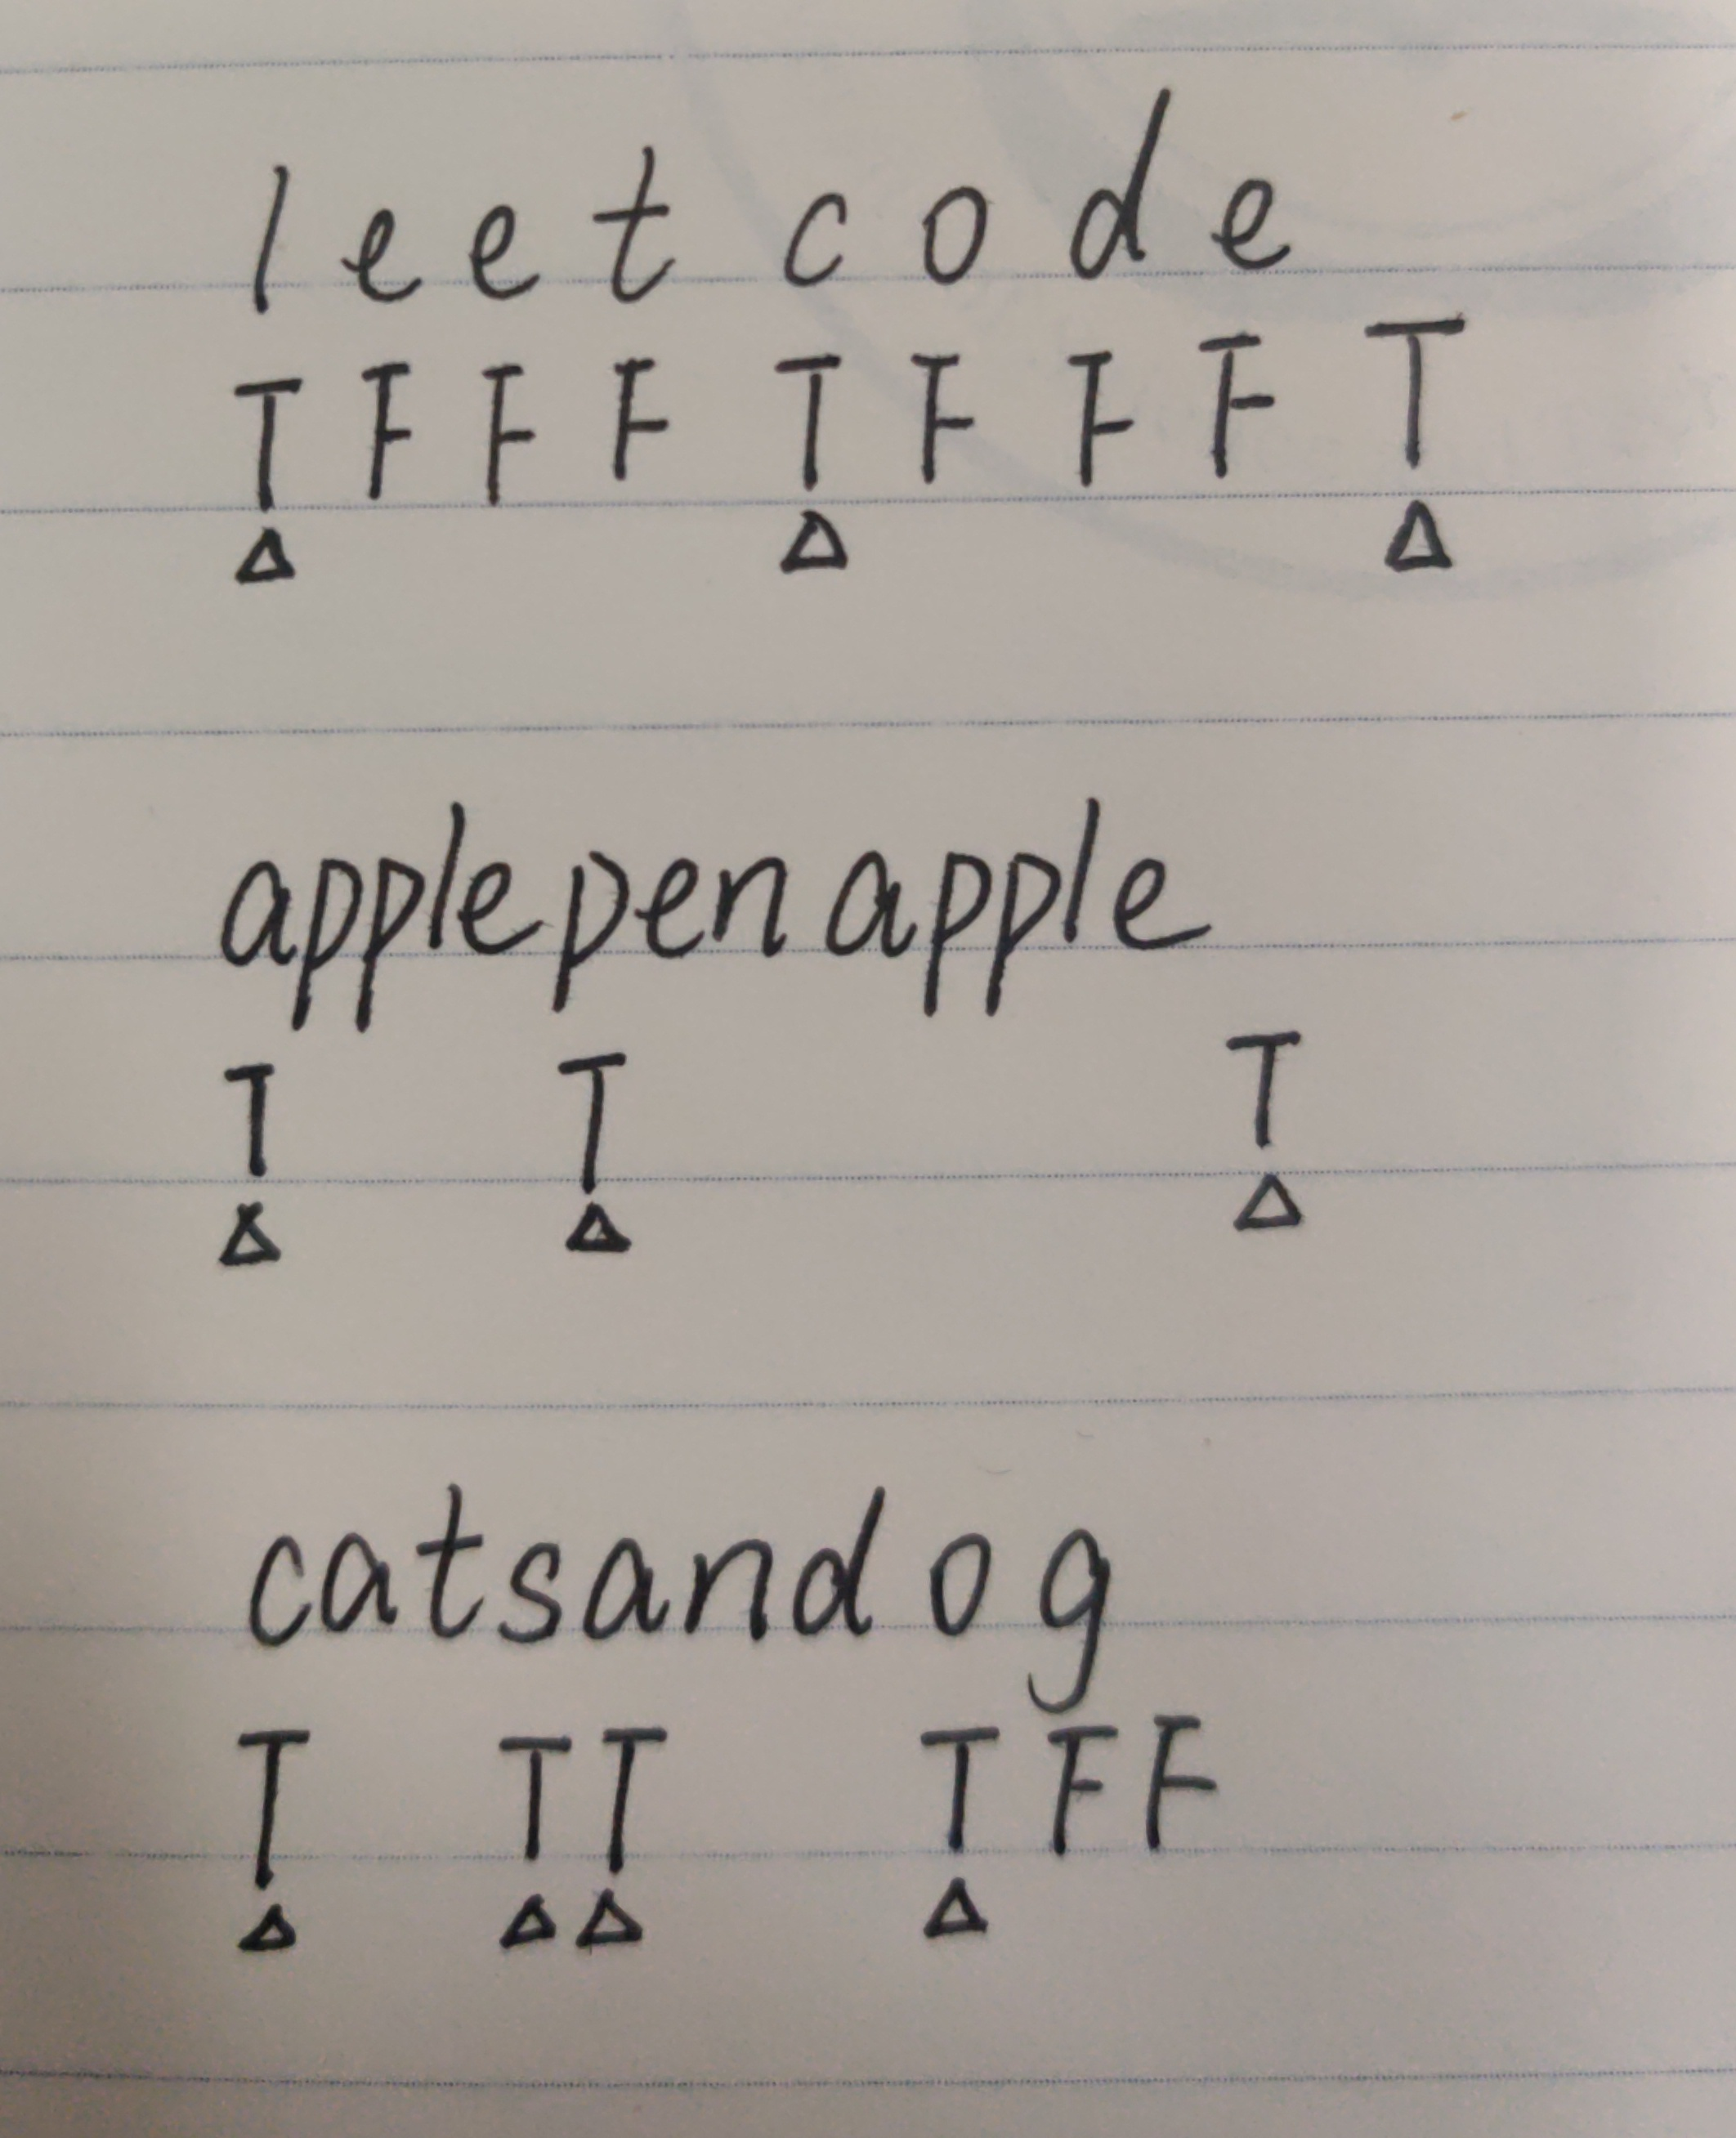 l e e t c o d e
T F F F T F F F T
△ △ △
applepenapple
T T T
△ △ △
catsandog
T T T T F F
△ △ △ △